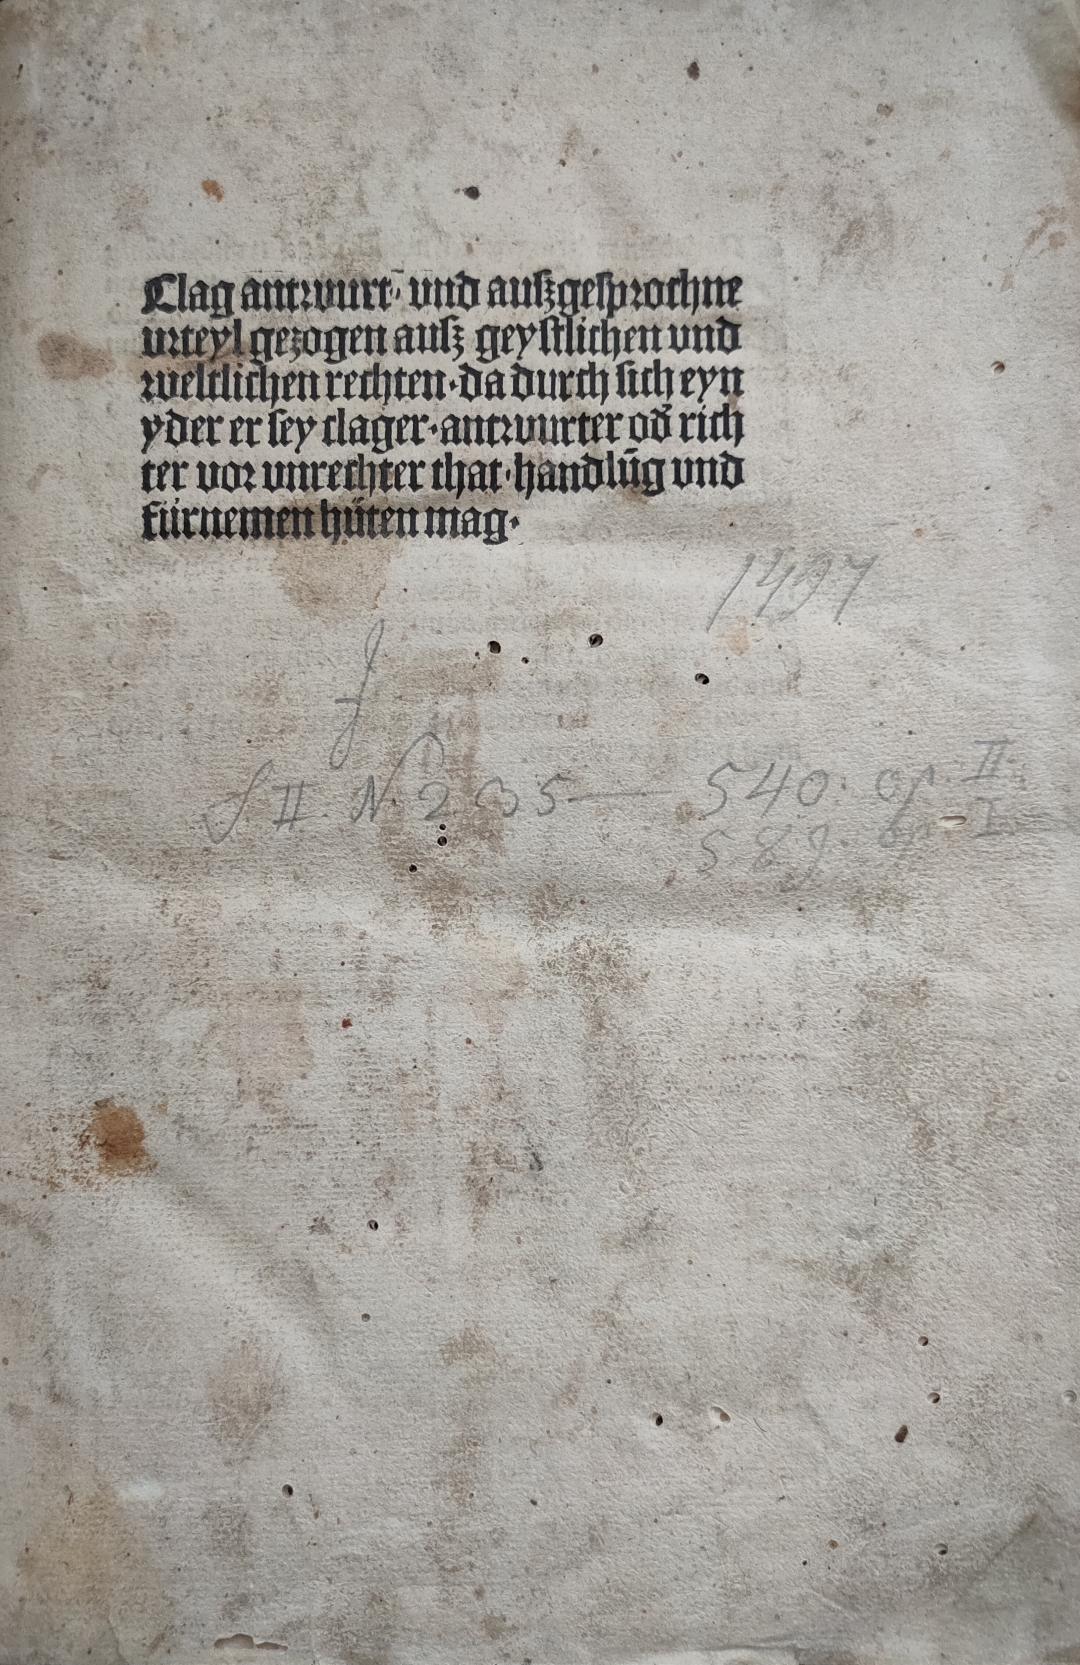 Clag antwurt· und außgesprochne
urteyl gezogen auß geystlichen und
weltlichen rechten·da durch sich eyn
yder er sey clager·antwurter od̕ rich
ter vor unrechter that·handlūg und
fürnemen hüten mag·
1497
J
S II. N 235 — 540. op. II.
589. op I.